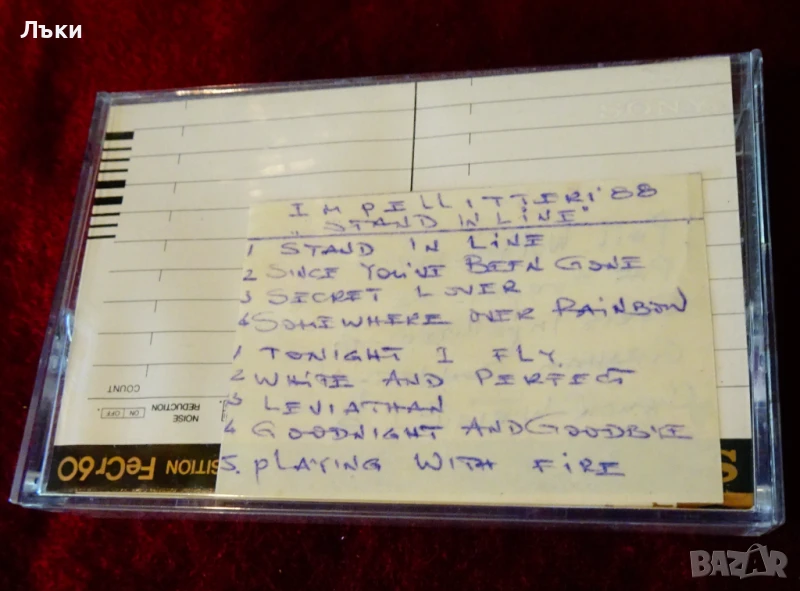 Лъки
SONY
IMPELLITTERI '88
„STAND IN LINE"
1 STAND IN LINE
2 SINCE YOU'VE BEEN GONE
3 SECRET LOVER
4 SOMEWHERE OVER RAINBOW
1 TONIGHT I FLY
2 WHITE AND PERFECT
3 LEVIATHAN
4 GOODNIGHT AND GOODBYE
5. PLAYING WITH FIRE
COUNT
NOISE REDUCTION
ON OFF
SITION FeCr60
S
BAZAR